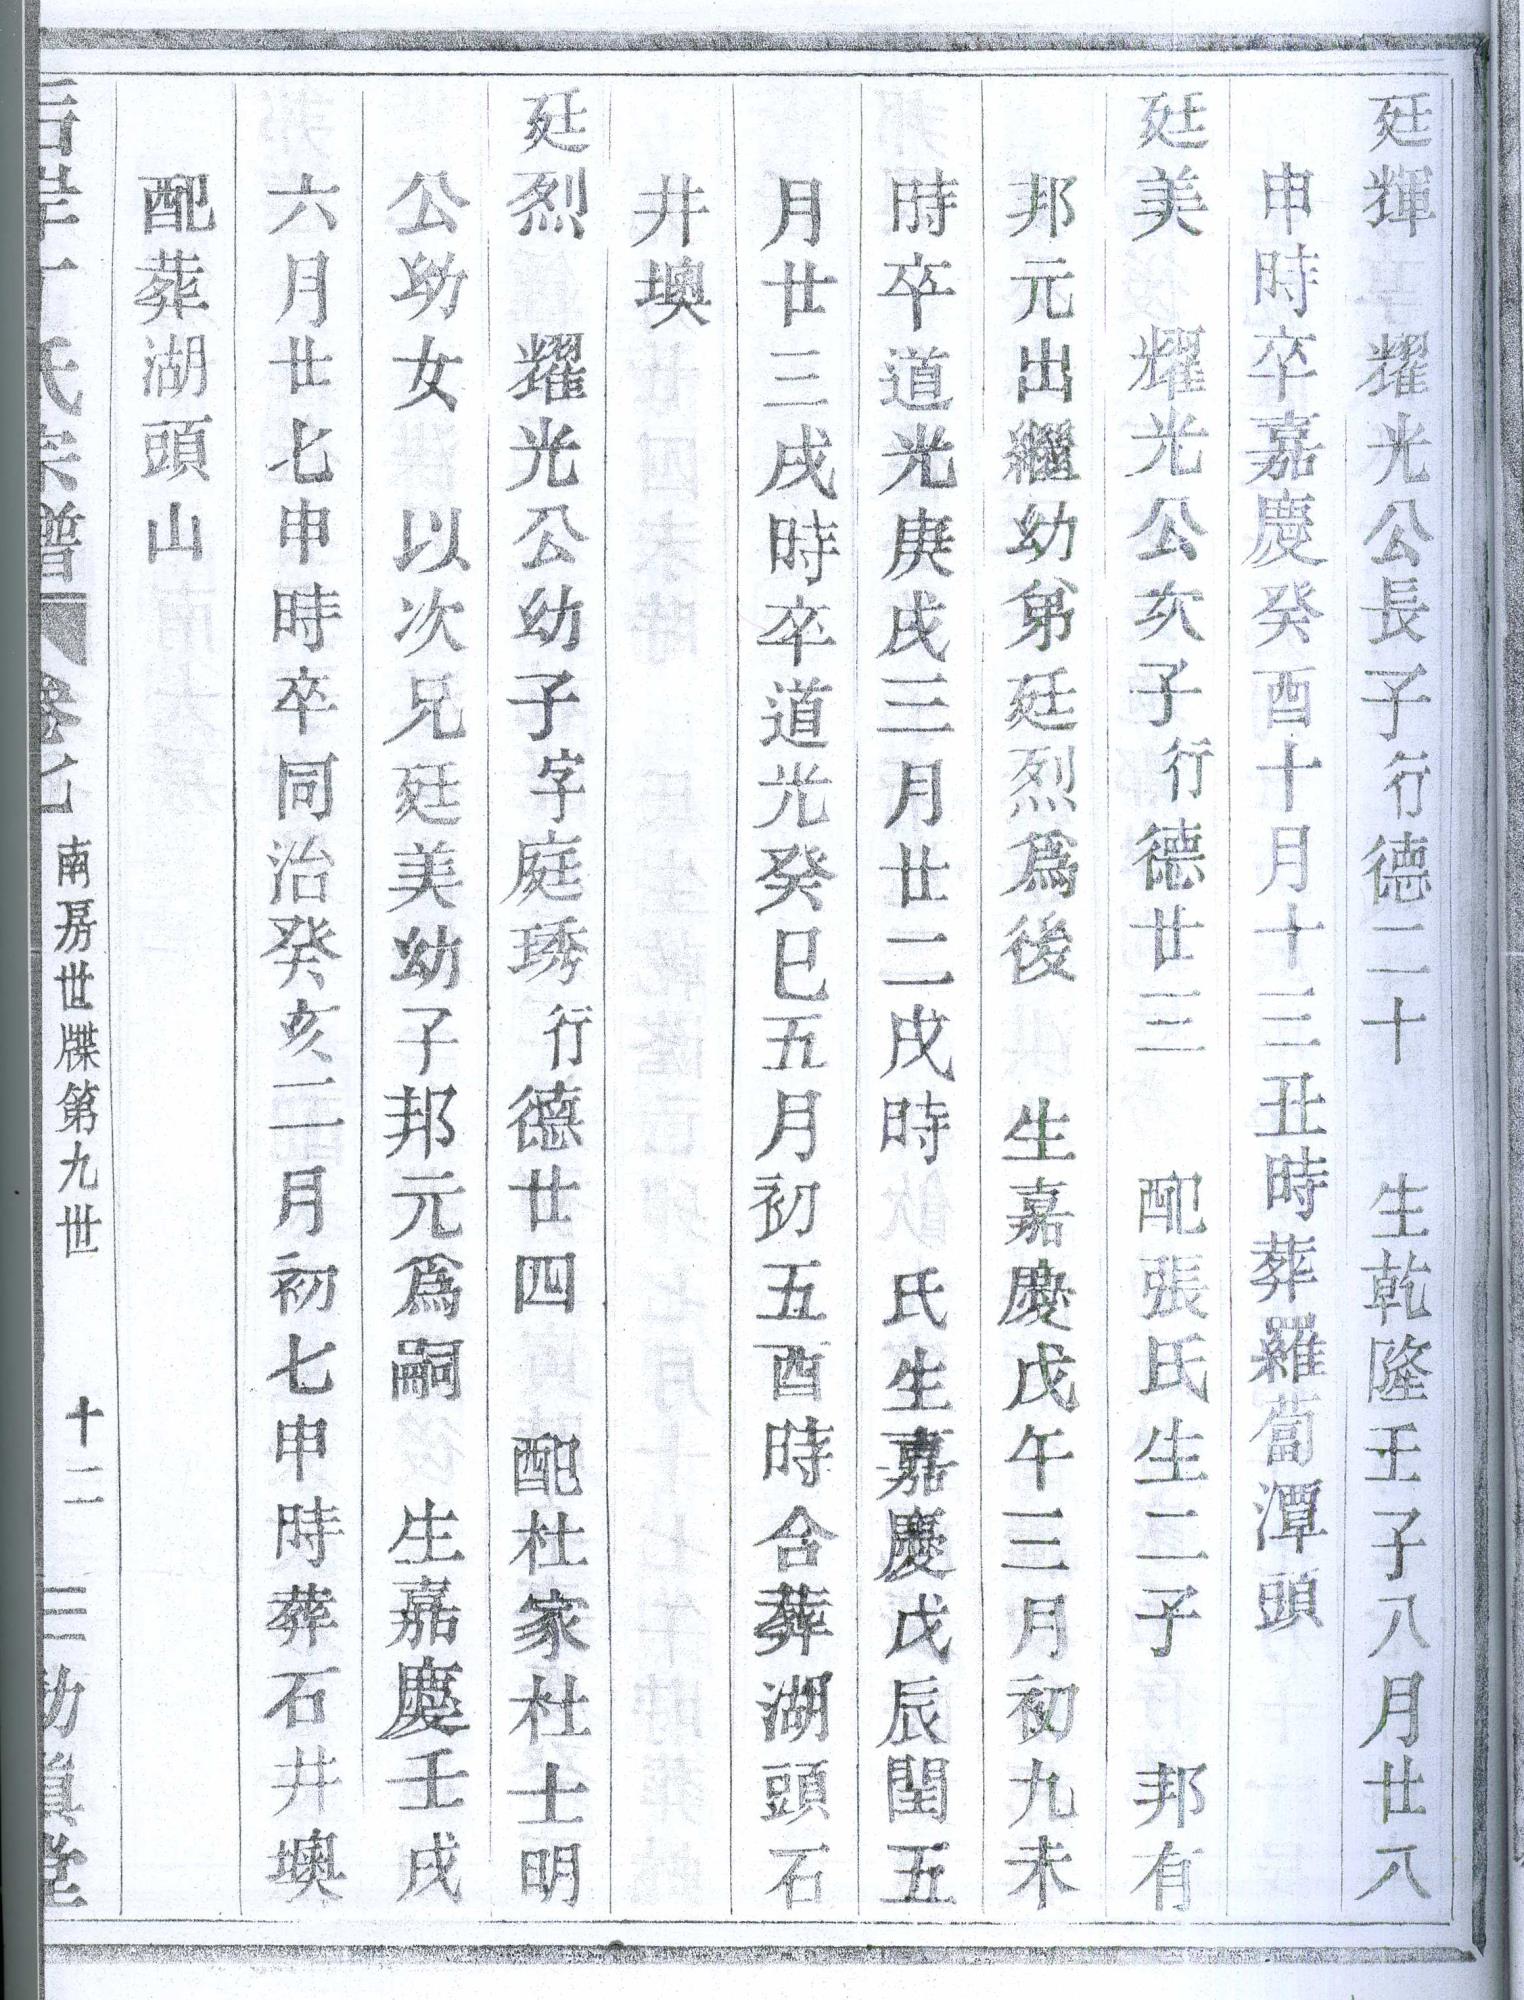 廷輝 耀光公長子行德二十 生乾隆壬子八月廿八
申時卒嘉慶癸酉十月十三丑時葬羅蔔潭頭
廷美 耀光公次子行德廿三 配張氏生二子 邦有
邦元出繼幼弟廷烈爲後 生嘉慶戊午三月初九未
時卒道光庚戌三月廿二戌時 氏生嘉慶戊辰閏五
月廿三戌時卒道光癸巳五月初五酉時合葬湖頭石
井墺
廷烈 耀光公幼子字庭琇行德廿四 配杜家杜士明
公幼女 以次兄廷美幼子邦元爲嗣 生嘉慶壬戌
六月廿七申時卒同治癸亥二月初七申時葬石井墺
配葬湖頭山
氏宗譜 卷七 南房世牒第九世 十二